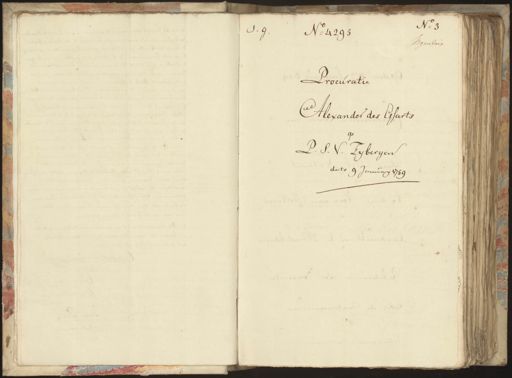 S. 9. Nº 4295 Nº 3
Procuratie
Alexander des Essarts
op
P. S. V. Eybergen
dato 9 January 1789